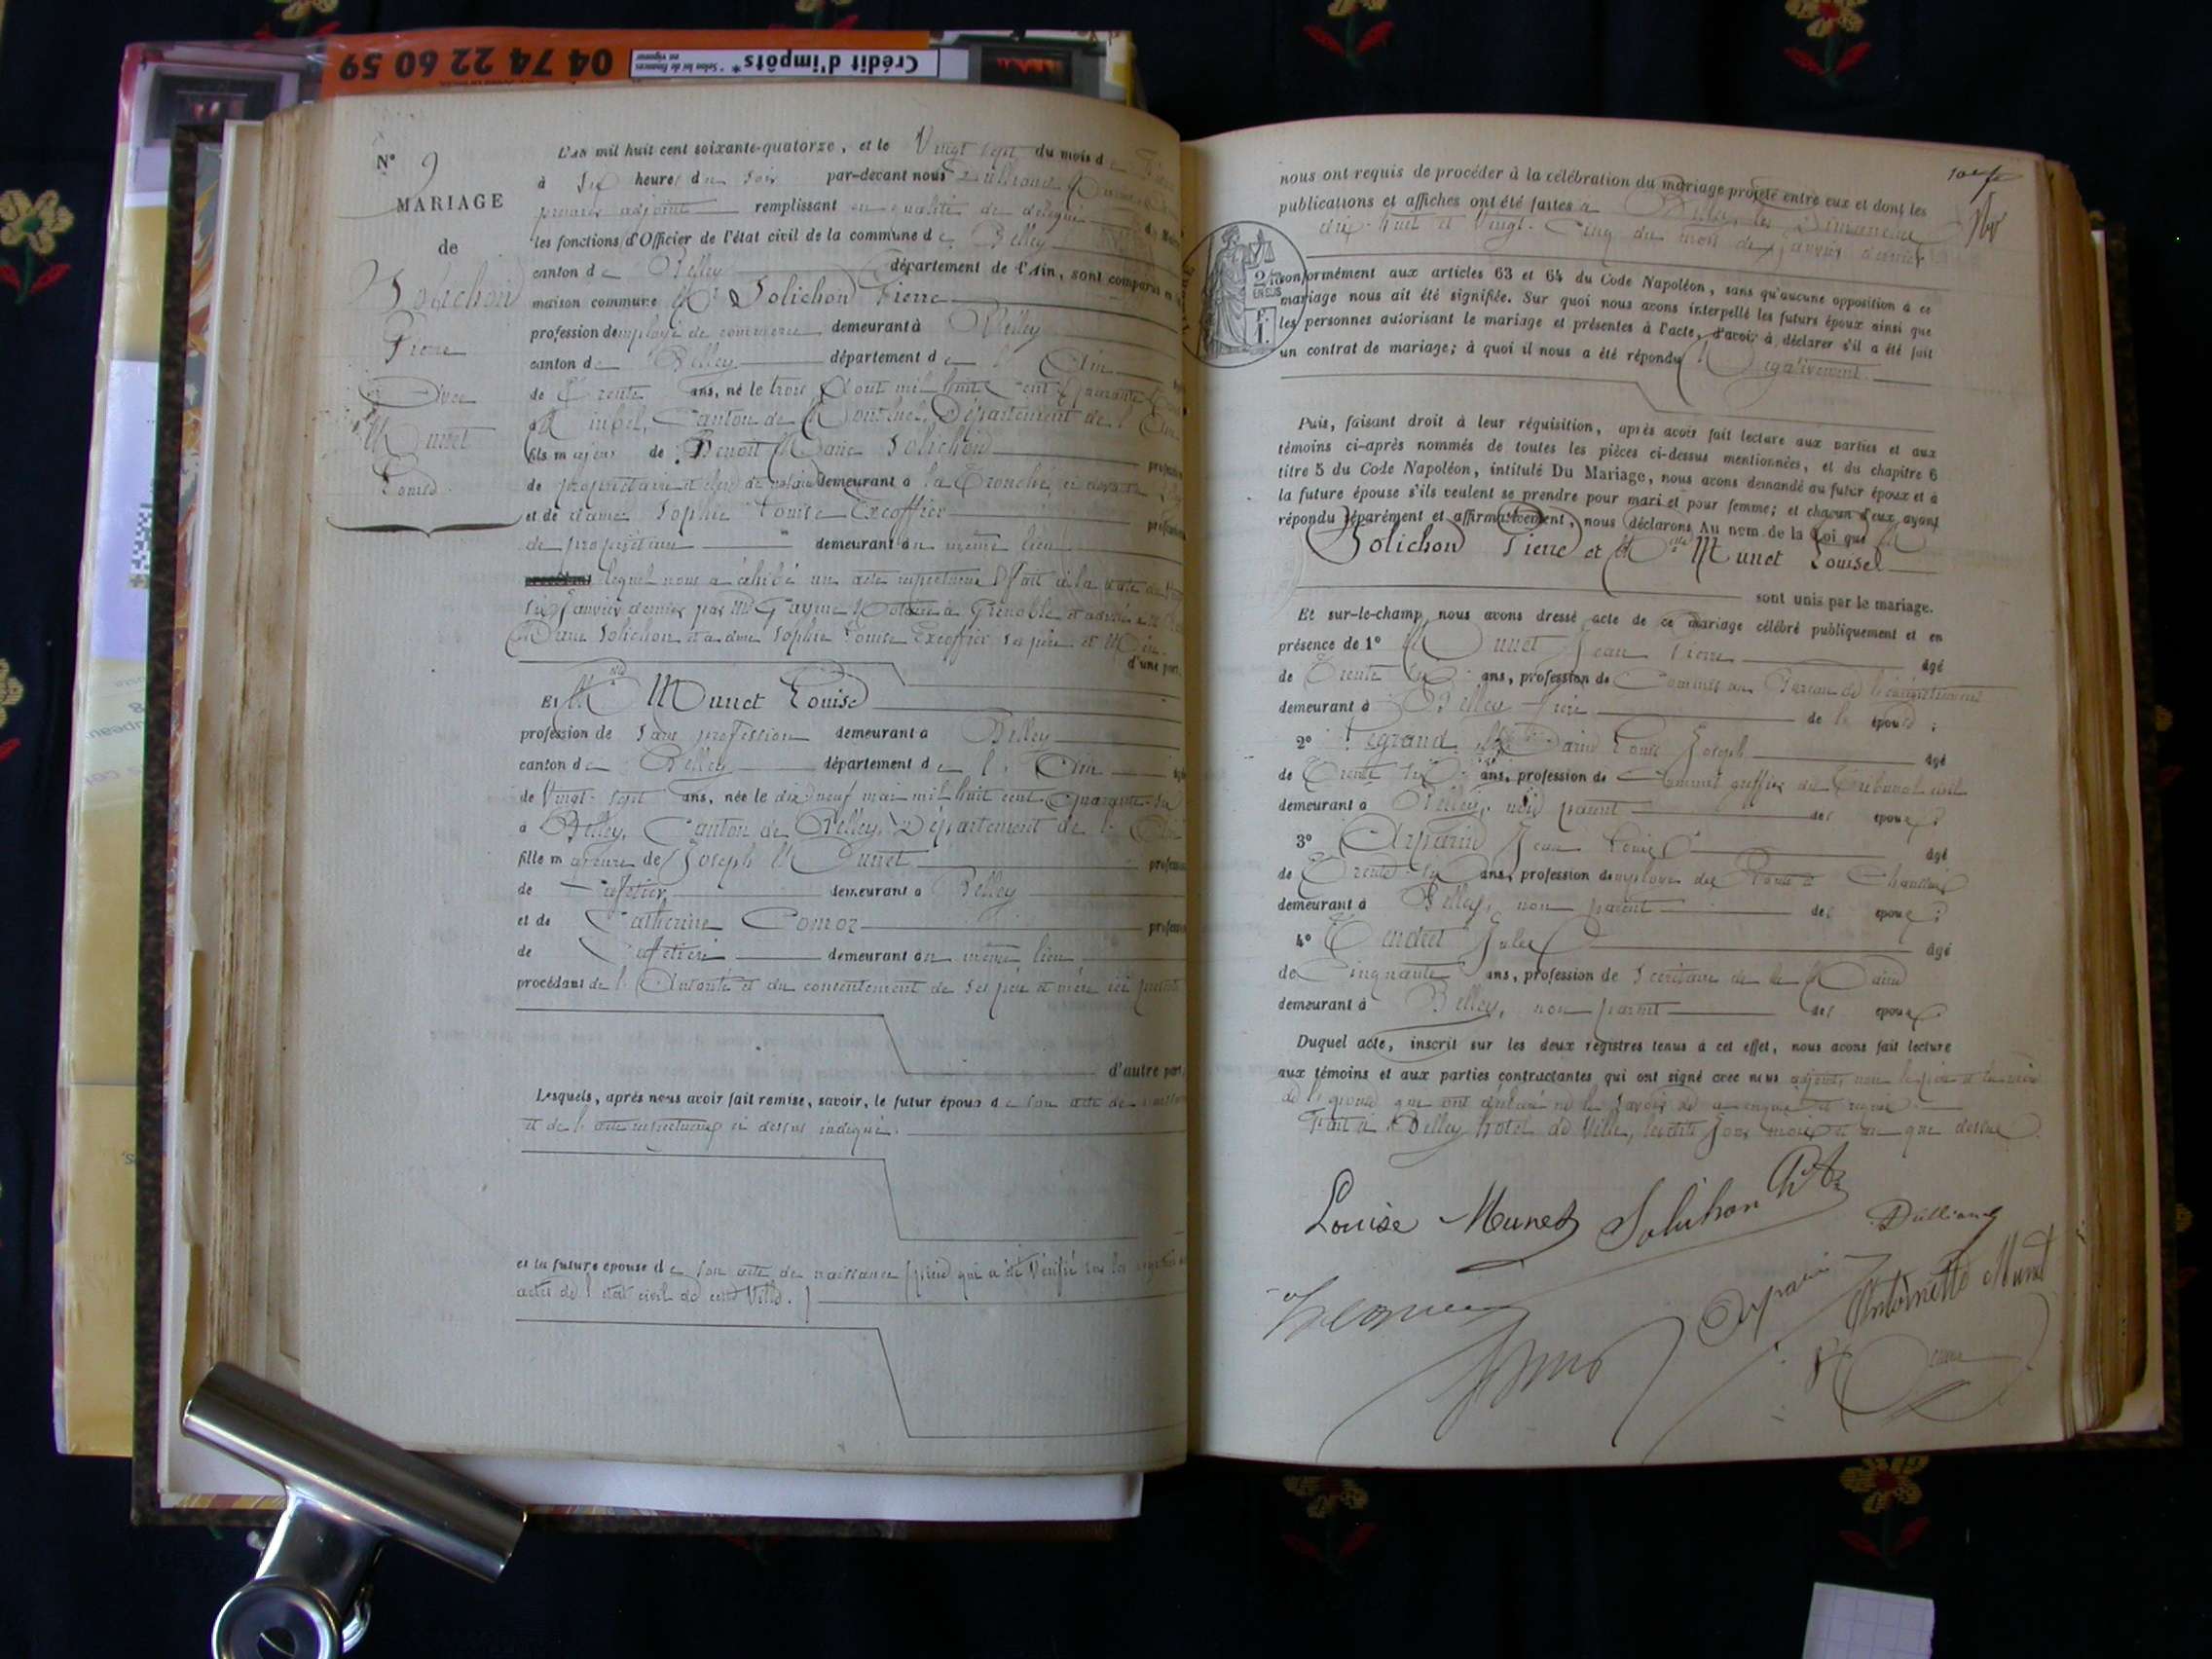 04 74 22 60 59
Crédit d'impôts*
*Selon loi de finances en vigueur
N° 9
MARIAGE
de
Solichon
Pierre
Avec
Munet
Louise
L'AN mil huit cent soixante-quatorze, et le Vingt sept du mois de
à Six heures du soir par-devant nous
premier adjoint remplissant en qualité de délégué
les fonctions d'Officier de l'état civil de la commune de Belley
canton de Belley département de l'Ain, sont comparus en la
maison commune Mr Solichon Pierre
profession d'employé de commerce demeurant à Belley
canton de Belley département de l'Ain
de Trente ans, né le trois Août mil huit cent quarante
à Miribel, Canton de Montluel, Département de l'Ain
fils majeur de Benoit Marie Solichon
de propriétaire et clerc de notaire demeurant à la Tronche,
et de dame Sophie Louise Excoffier
de propriétaire demeurant au même lieu
lequel nous a exhibé un acte respectueux fait à la date du
six Janvier dernier par Me Gayme Notaire à Grenoble et adressé
Marie Solichon et à dme Sophie Louise Excoffier ses père et Mère.
d'une part.
Et Mlle Munet Louise
profession de sans profession demeurant à Belley
canton de Belley département de l'Ain
de Vingt-sept ans, née le dix neuf mai mil huit cent quarante-six
à Belley, Canton de Belley, Département de l'Ain
fille majeure de Joseph Munet
de Cafetier demeurant à Belley
et de Catherine Comoz
de Cafetière demeurant au même lieu
procédant de l'Autorité et du consentement de ses père et mère ici présents
d'autre part.
Lesquels, après nous avoir fait remise, savoir, le futur époux de son acte de naissance
et de l'acte respectueux ci dessus indiqué.
et la future épouse de son acte de naissance (pièce qui a été vérifié sur les registres
actes de l'état civil de cette Ville.)
nous ont requis de procéder à la célébration du mariage projeté entre eux et dont les
publications et affiches ont été faites à Belley, les Dimanches
dix-huit et Vingt-Cinq du mois de janvier dernier
conformément aux articles 63 et 64 du Code Napoléon, sans qu'aucune opposition à ce
mariage nous ait été signifiée. Sur quoi nous avons interpellé les futurs époux ainsi que
les personnes autorisant le mariage et présentes à l'acte, d'avoir à déclarer s'il a été fait
un contrat de mariage; à quoi il nous a été répondu Négativement.
Puis, faisant droit à leur réquisition, après avoir fait lecture aux parties et aux
témoins ci-après nommés de toutes les pièces ci-dessus mentionnées, et du chapitre 6
titre 5 du Code Napoléon, intitulé Du Mariage, nous avons demandé au futur époux et à
la future épouse s'ils veulent se prendre pour mari et pour femme; et chacun d'eux ayant
répondu séparément et affirmativement, nous déclarons Au nom de la Loi que Mr
Solichon Pierre et Mlle Munet Louise
sont unis par le mariage.
Et sur-le-champ nous avons dressé acte de ce mariage célébré publiquement et en
présence de 1° Munet Jean Pierre âgé
de Trente six ans, profession de Commis au Bureau de l'enregistrement
demeurant à Belley frère de l'épouse;
2° Legrand Louis Joseph âgé
de Trente six ans, profession de Commis greffier du Tribunal civil
demeurant à Belley, non parent des époux;
3° Arparin Jean Louis âgé
de Trente six ans, profession d'employé des Ponts et Chaussées
demeurant à Belley, non parent des époux;
4° Tendret Jules âgé
de Cinquante ans, profession de Secrétaire de la Mairie
demeurant à Belley, non parent des époux
Duquel acte, inscrit sur les deux registres tenus à cet effet, nous avons fait lecture
aux témoins et aux parties contractantes qui ont signé avec nous adjoint, non le père et la mère
de l'épouse qui ont déclaré ne le savoir de ce enquis et requis.
Fait à Belley hôtel de Ville, lesdits jour mois et an que dessus.
Louise Munet Solichon
Arparin
Antoinette Munet